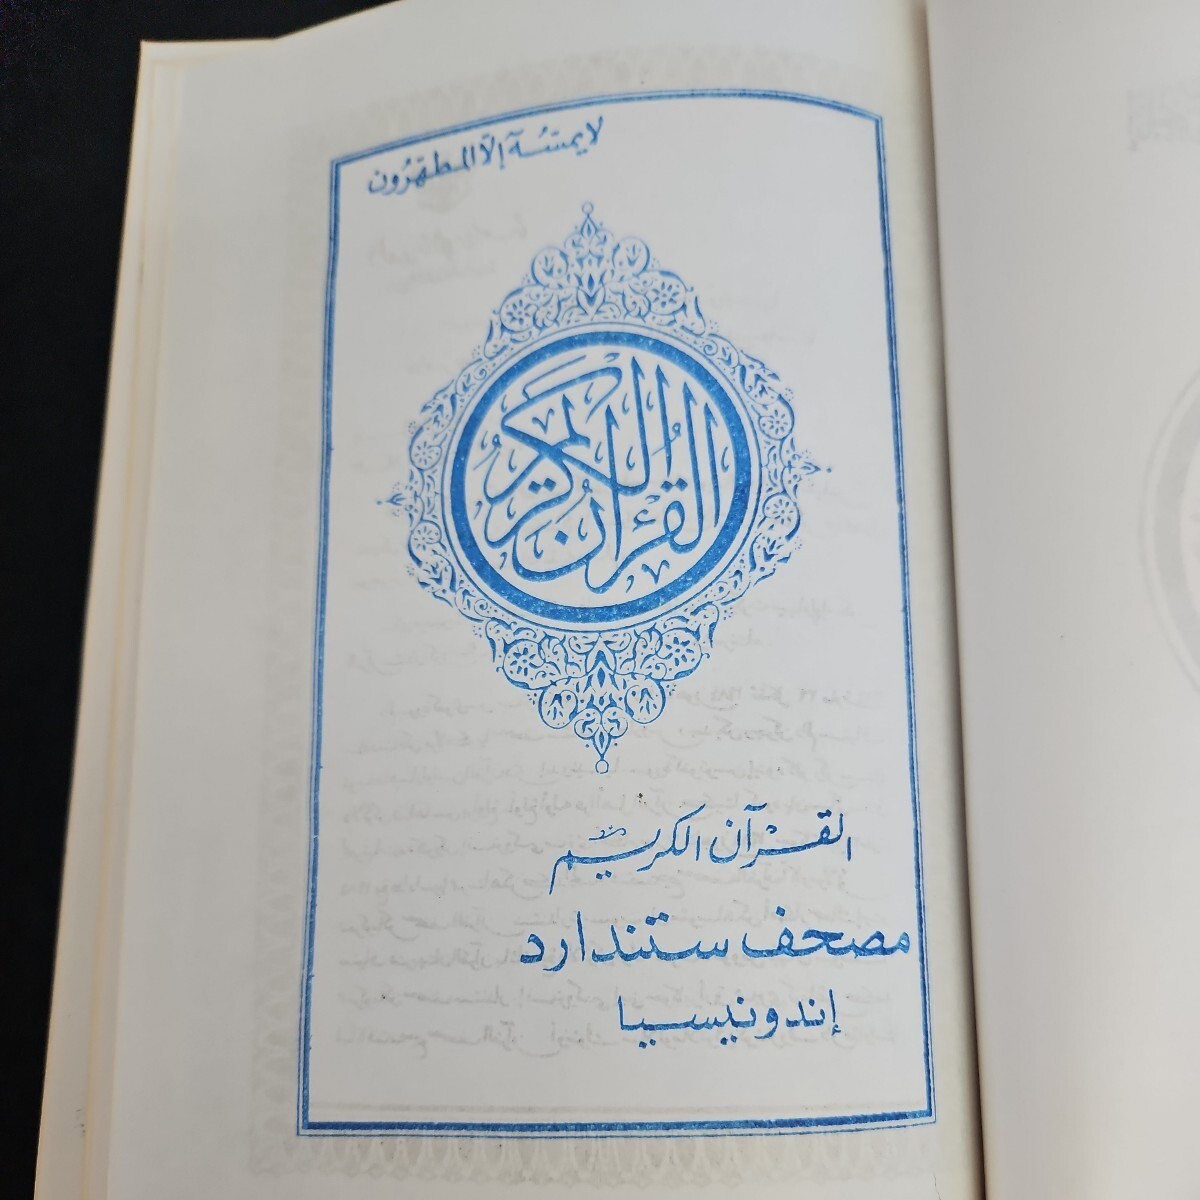 لا يمسّه إلّا المطهّرون
القرآن الكريم
القرآن الكريم
مصحف ستندارد
إندونيسيا